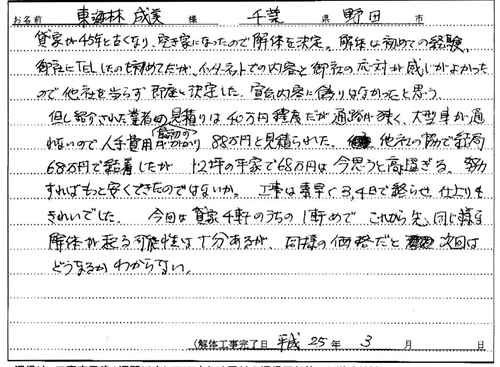 お名前 東海林 成漢 様 千葉 県 野田 市
貸家が45年と古くなり、空き家になったので解体を決定。解体は初めての経験、
御社にTELしたのも初めてだが、インターネットでの内容と御社の応対が感じがよかった
ので他社を当らず即座に決定した。宣伝内容に偽りはなかったと思う。
但し紹介された業者の見積りは40万円程度だが通路が狭く、大型車が通
れないので人手費用がかかり 最初の 88万円と見積られた。他社の 結局
68万円で 着したが 12坪の平家で68万円は今思うと高過ぎる。努力
すればもっと安くできたのではないか。工事は素早く3,4日で終らせ、仕上りも
きれいでした。今回は貸家4軒のうちの1軒めで、これから先、同じ様な
解体が起る可能性は十分あるが、同様の価格だと 次回は
どうなるかわからない。
(解体工事完了日 平成 25 年 3 月 日